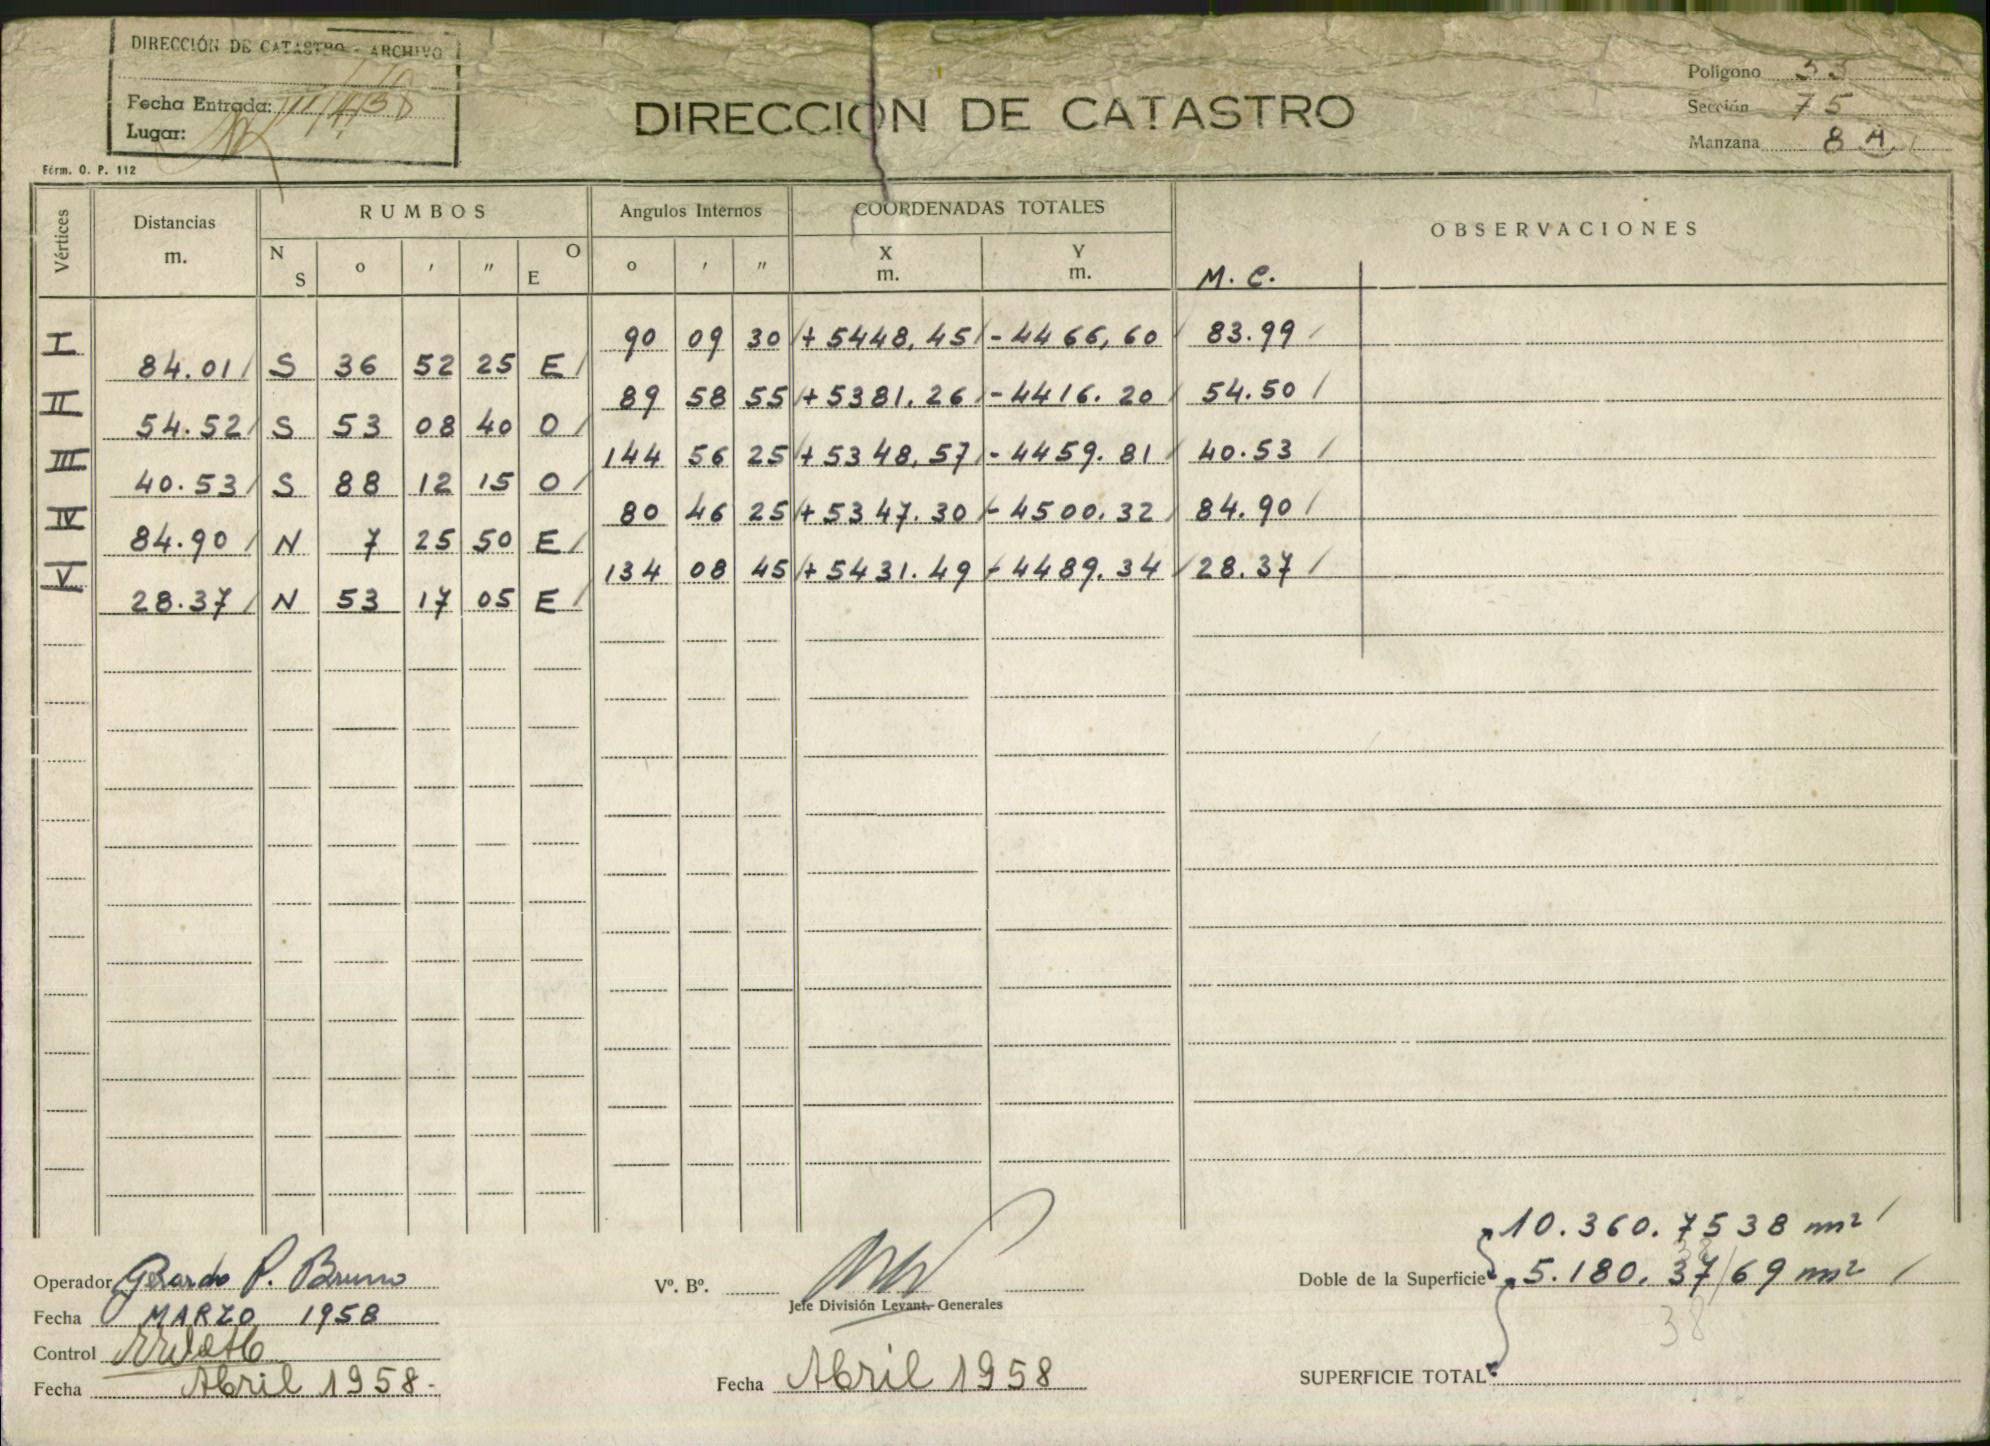 DIRECCIÓN DE CATASTRO - ARCHIVO
Fecha Entrada:
Lugar:
DIRECCION DE CATASTRO
Polígono 33
Sección 75
Manzana 8 A
Fórm. O. P. 112
Vértices Distancias m. RUMBOS Angulos Internos COORDENADAS TOTALES OBSERVACIONES
N S o ' " O E o ' " X m. Y m. M. C.
I 90 09 30 + 5448,45 - 4466,60 83.99
84.01 S 36 52 25 E
II 89 58 55 + 5381.26 - 4416.20 54.50
54.52 S 53 08 40 O
III 144 56 25 + 5348,57 - 4459.81 40.53
40.53 S 88 12 15 O
IV 80 46 25 + 5347.30 - 4500.32 84.90
84.90 N 7 25 50 E
V 134 08 45 + 5431.49 - 4489.34 28.37
28.37 N 53 17 05 E
10.360.7538 m²
Operador Gerardo P. Bruno
Vº. Bº.
Doble de la Superficie 5.180.37/69 m²
Jefe División Levant. Generales
Fecha MARZO 1958
38
Control
Fecha Abril 1958.
Fecha Abril 1958
SUPERFICIE TOTAL